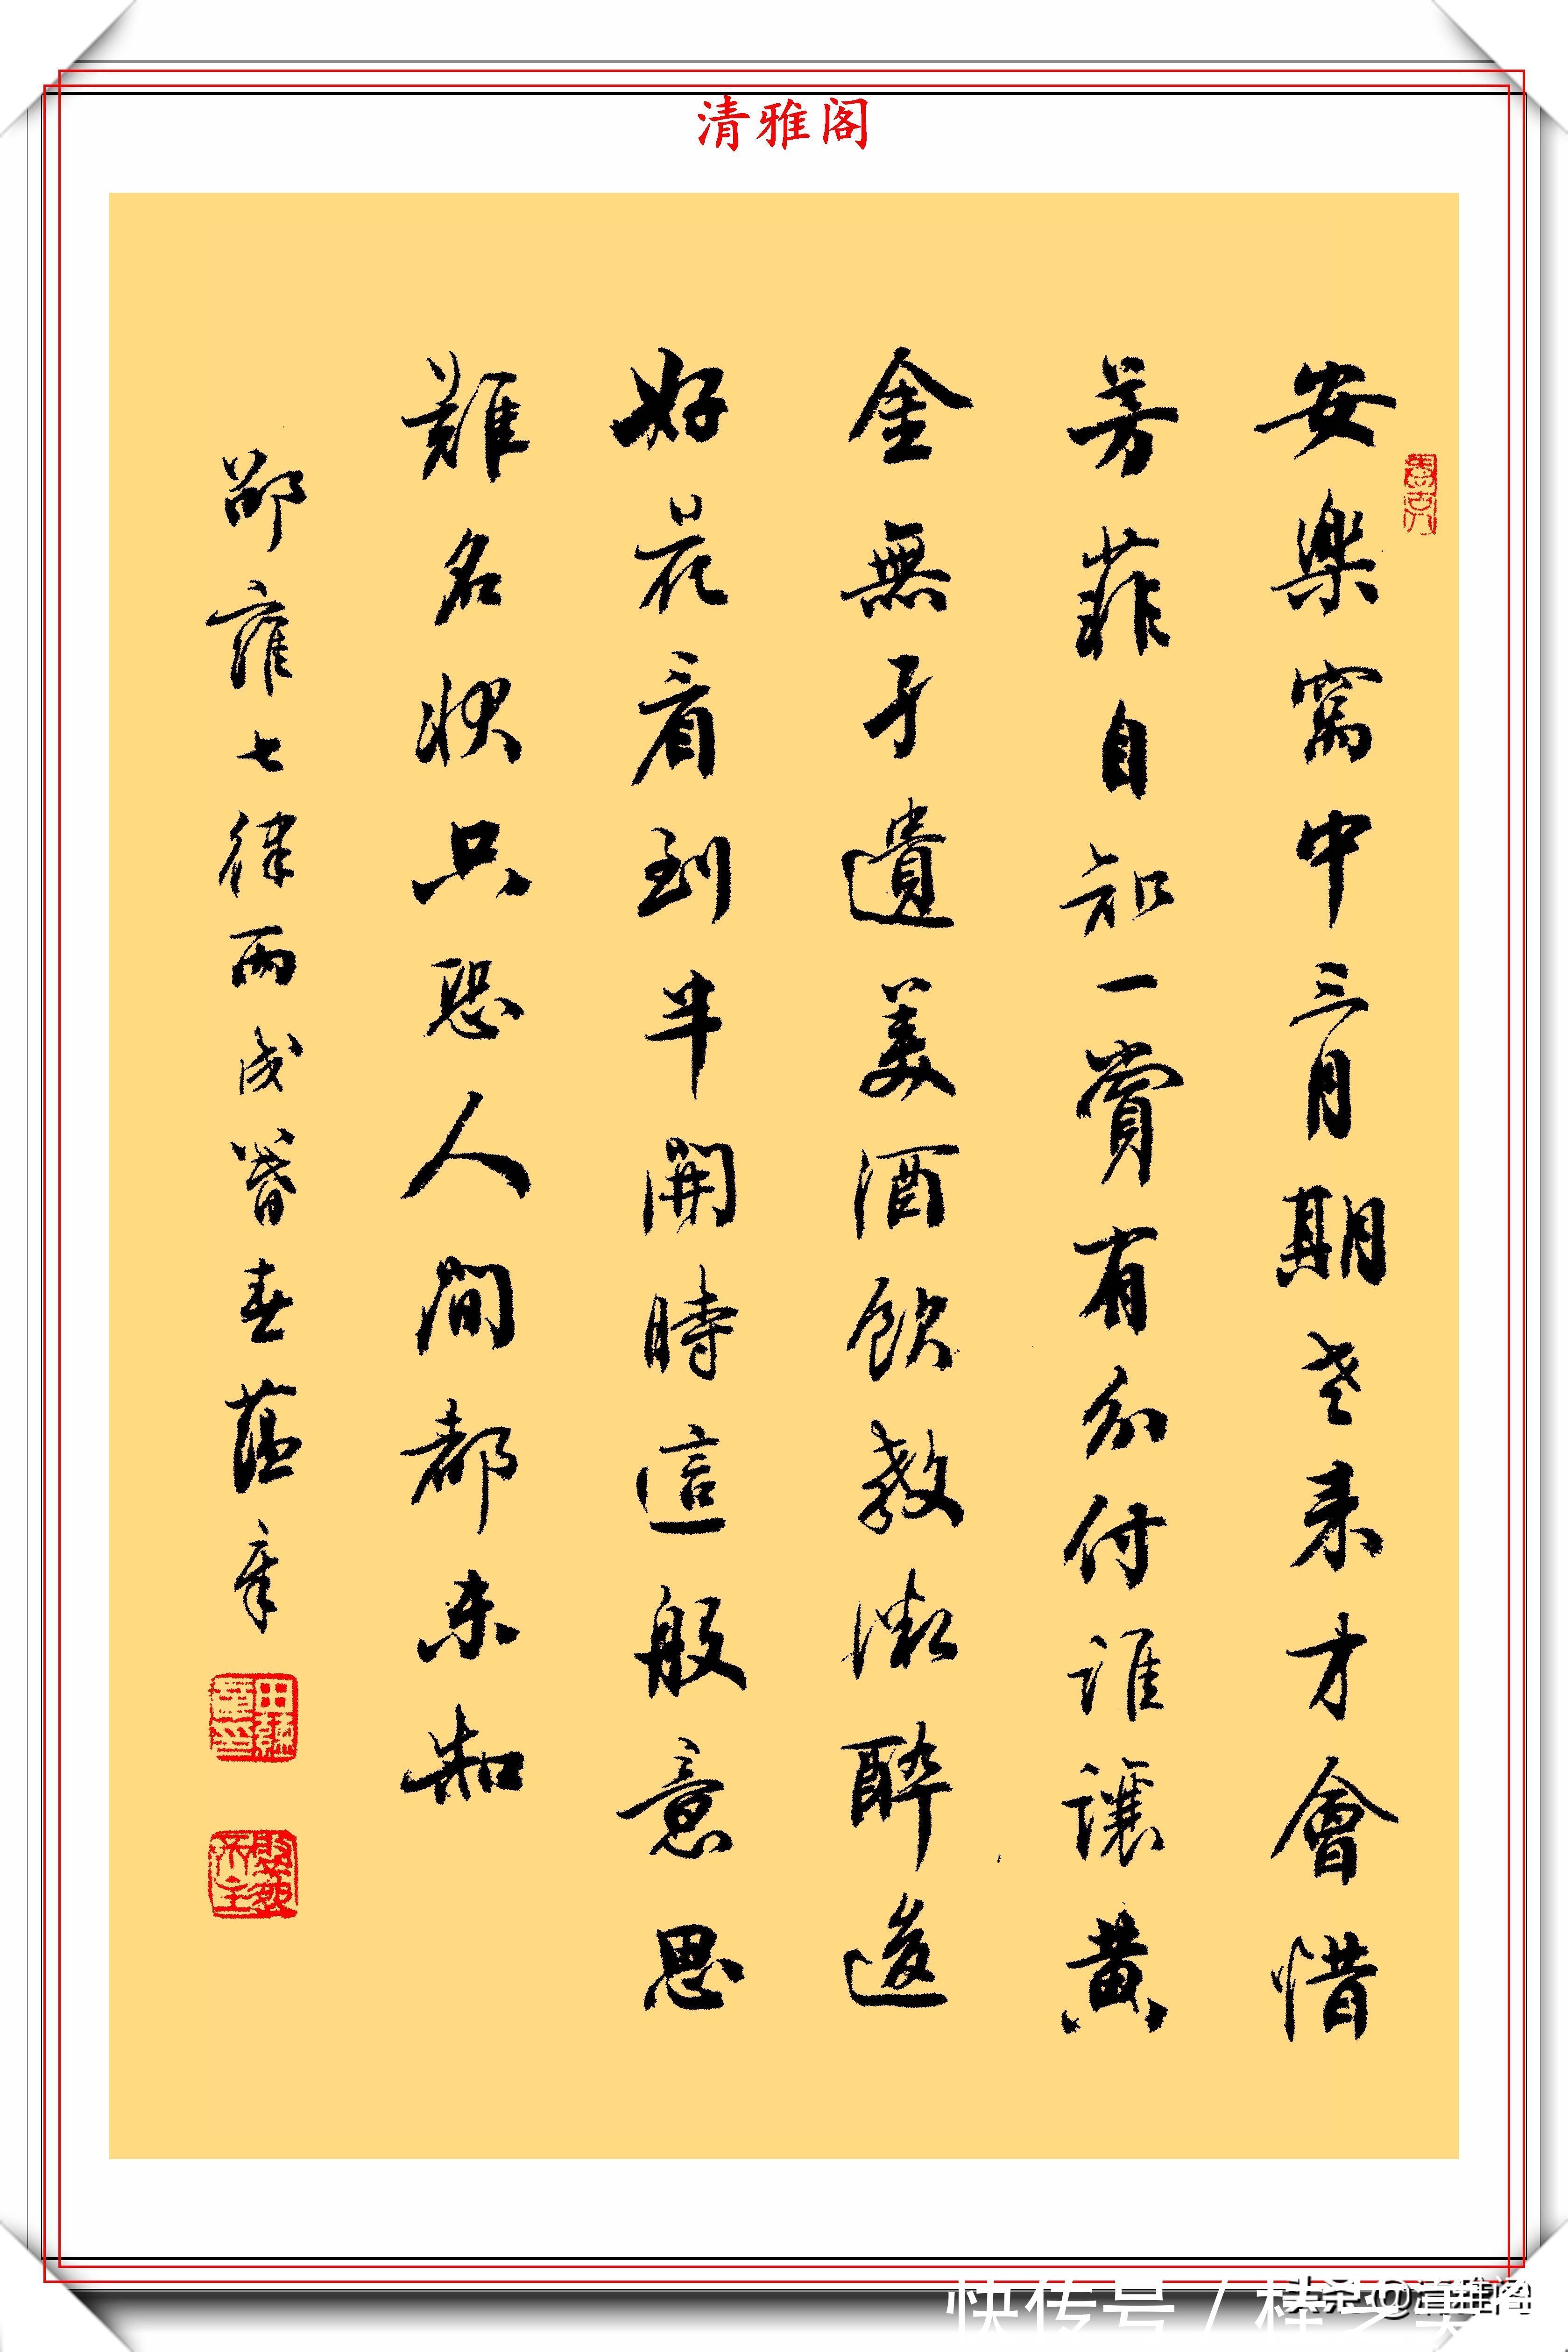 清雅阁
安楽窩中三月期老来才會惜
芳菲自知一賞有分付誰讓黄
金無孑遺美酒飲教微醉後
好花看到半開時這般意思
難名狀只恐人間都未知
邵雍七律丙戌暮春蘊章
田蘊章印
快传号 /
@清雅阁